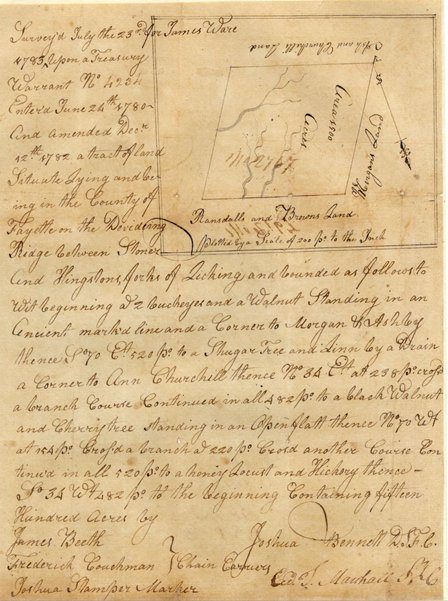 Survey'd July the 23rd for James Ware
1783 Upon a Treasury
Warrant No 4234
Enter'd June 24th 1780
And Amended Decr
12th 1782 a tract of land
Situate Lying and be
ing in the County of
Fayette on the Dividering
Ridge between Stoner
and Hingstons forks of Licking and bounded as follows to
Wit beginning at 2 Buckeyes and a Walnut Standing in an
Ancient mark'd line and a Corner to Morgan & Ashby
thence So 70 Et 520 po to a Shugar Tree and Linn by a Drain
a Corner to Ann Churchill thence No 34 Et at 238 po cross'd
a branch Course Continued in all 482 po to a black Walnut
and Cherry tree Standing in an Open flatt thence No 70 Wt
at 154 po Cross'd a branch at 220 po Cross'd another Course Con
tinu'd in all 520 po to a honey Locust and Hickory thence
So 34 Wt 482 po to the beginning Containing fifteen
Hundred Acres by
James Beeth
Frederick Couchman } Chain Carriers
Joshua Stamper Marker
Joshua Bennett D.S.F.C.
Exd T. Marshall S.F.C
Ann Churchills Land
Area 1500
Acres
Morgans Land
Ransdalls and Browns Land
Platted by a Scale of 200 po to the Inch